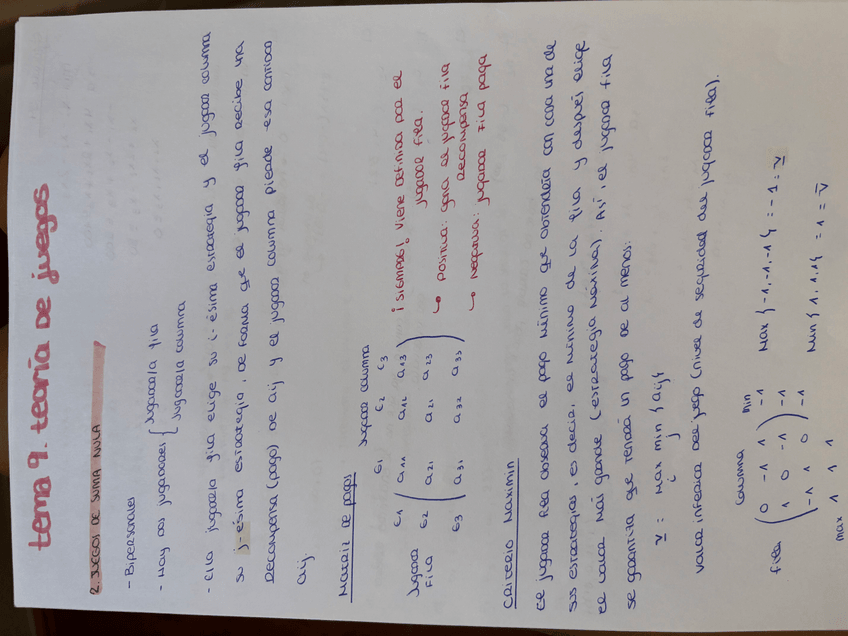 tema 9. teoría de juegos
2. JUEGOS DE SUMA NULA
- Bipersonales
- Hay dos jugadores { Jugador/a fila
Jugador/a columna
- El/la jugador/a fila elige su i-ésima estrategia y el jugador columna
su j-ésima estrategia, de forma que el jugador fila recibe una
recompensa (pago) de aij y el jugador columna pierde esa cantidad
aij
Matriz de pagos
Jugador columna
E1 E2 E3
Jugador fila
E1 ( a11 a12 a13 )
E2 ( a21 a21 a23 )
E3 ( a31 a32 a33 )
¡SIEMPRE! viene definida por el
jugador fila.
↳ Positiva: gana el jugador fila
recompensa
↳ Negativa: jugador fila paga
Criterio Maximin
El jugador fila observa el pago mínimo que obtendría con cada una de
sus estrategias, es decir, el mínimo de la fila y después elige
el valor más grande (estrategia máxima). Así, el jugador fila
se garantiza que tendrá un pago de al menos:
v = max min {aij}
i j
Valor inferior del juego (nivel de seguridad del jugador fila).
columna min
fila ( 0 -1 1 ) -1
( 1 0 -1 ) -1
( -1 1 0 ) -1
max 1 1 1
Max {-1,-1,-1} = -1 = v
Min {1,1,1} = 1 = v̄